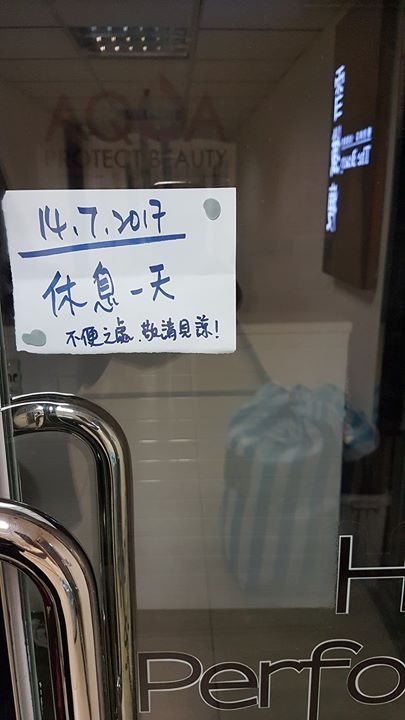 AQUA
PROTECT BEAUTY
14.7.2017
休息一天
不便之處,敬請見諒!
H
Perfo